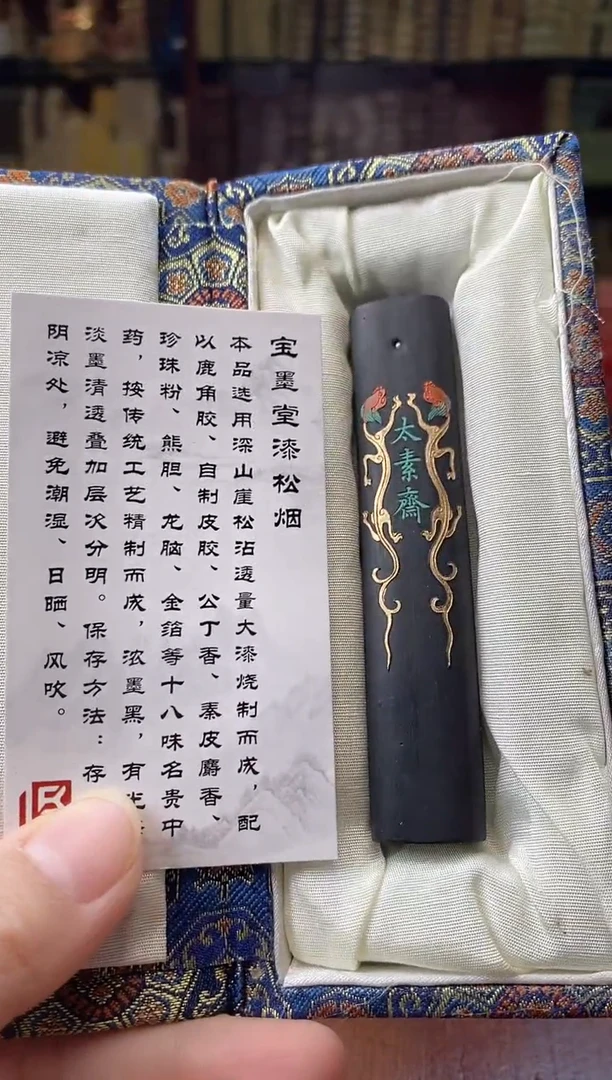 宝墨堂漆松烟
本品选用深山崖松沾透量大漆烧制而成，配
以鹿角胶、自制皮胶、公丁香、秦皮麝香、
珍珠粉、熊胆、龙脑、金箔等十八味名贵中
药，按传统工艺精制而成，浓墨黑，有光
淡墨清透叠加层次分明。保存方法：存
阴凉处，避免潮湿、日晒、风吹。
太素齋